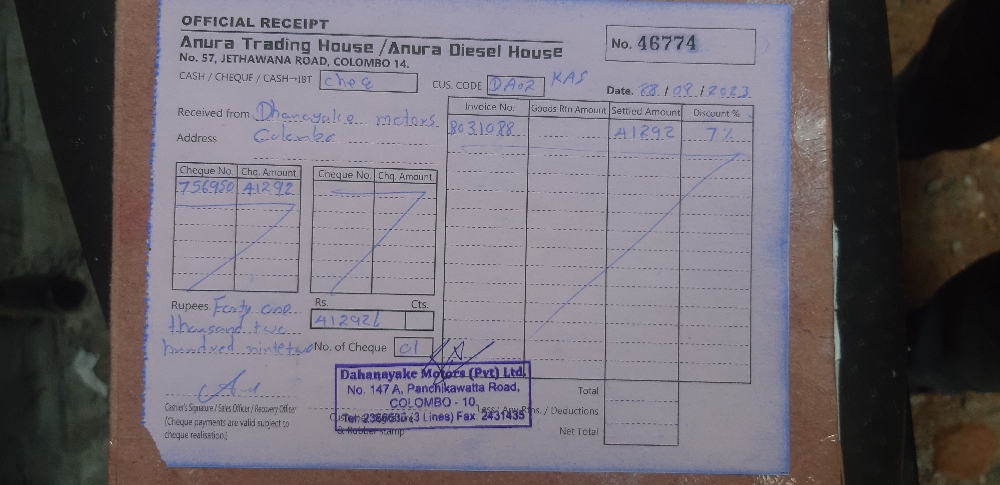 OFFICIAL RECEIPT
Anura Trading House /Anura Diesel House
No. 57, JETHAWANA ROAD, COLOMBO 14.
No. 46774
CASH / CHEQUE / CASH→IBT cheq
CUS. CODE DA02 KAS
Date. /09/2023
Received from Dhanayake motors
Address Colombo
Invoice No. Goods Rtn Amount Settled Amount Discount %
8031088 41292 7%
Cheque No. Chq. Amount Cheque No. Chq. Amount
756950 41292
Rupees Forty one
thousand two
hundred ninte two
Rs. Cts.
41292/
No. of Cheque 01
Dahanayake Motors (Pvt) Ltd.
No. 147 A, Panchikawatta Road,
COLOMBO - 10.
Tel: (3 Lines) Fax 2431435
& Rubber stamp
Cashier's Signature / Sales Officer / Recovery Officer
(Cheque payments are valid subject to
cheque realisation.)
Total
Less: Any Rtns. / Deductions
Net Total